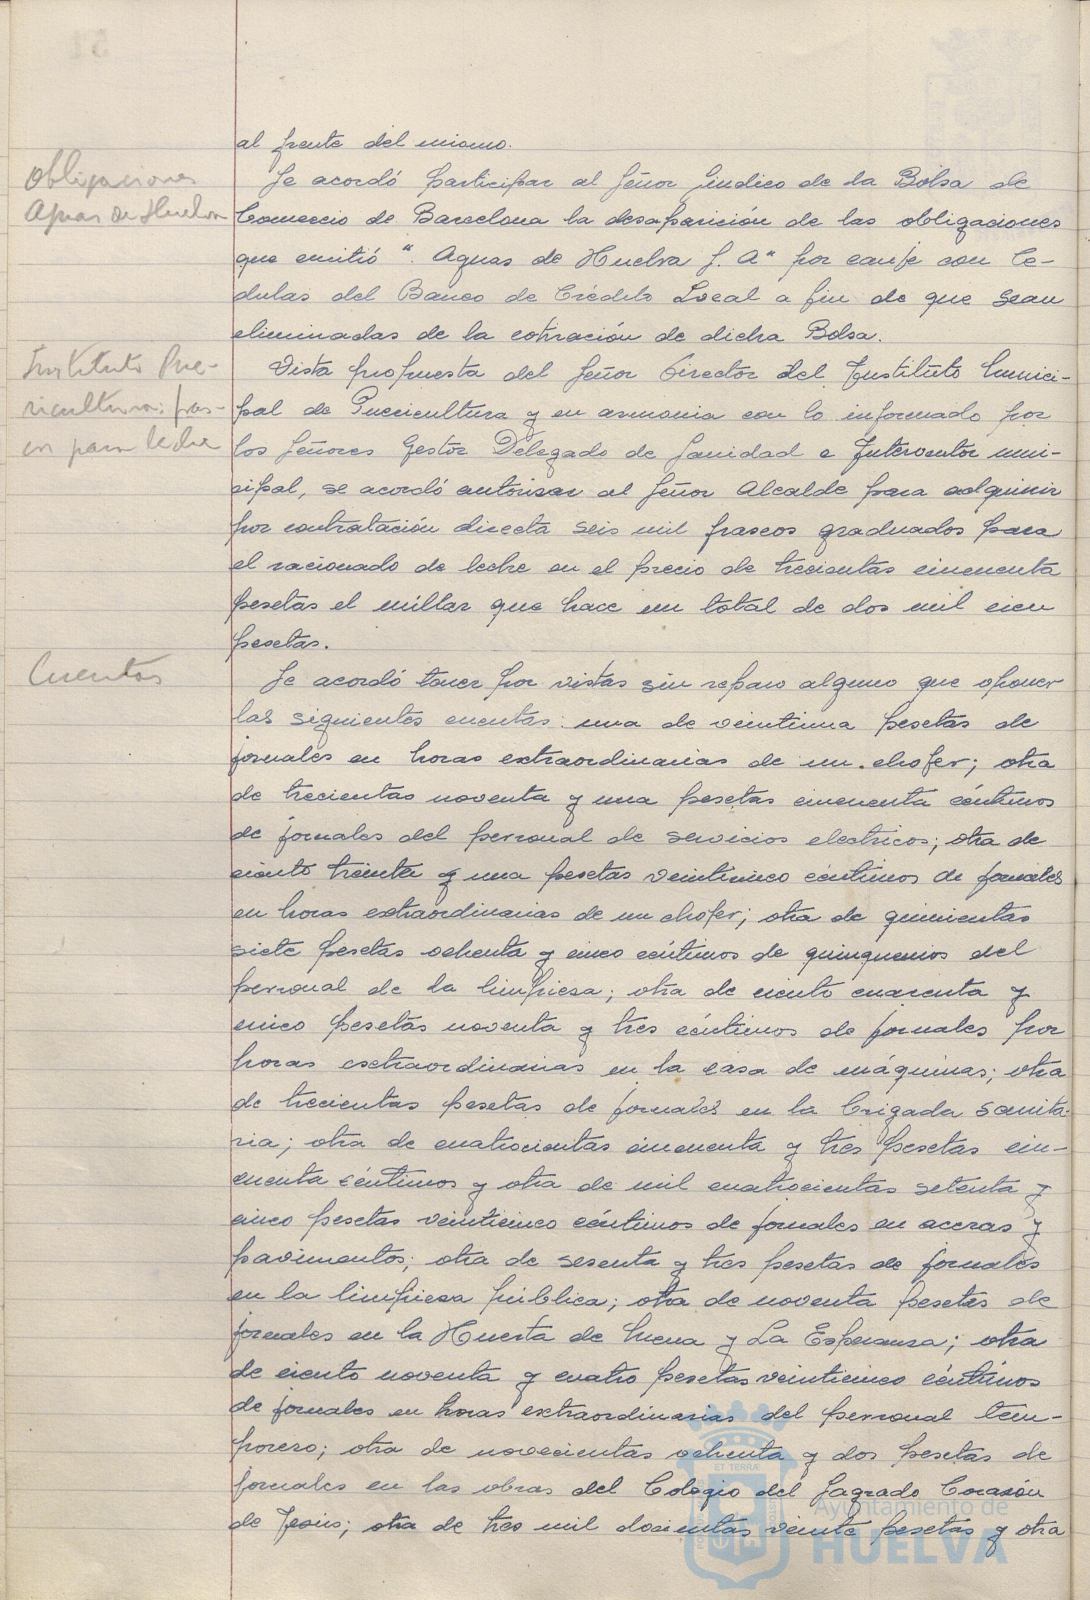 al frente del mismo.
Obligaciones
Aguas de Huelva
Se acordó participar al Señor Síndico de la Bolsa de
Comercio de Barcelona la desaparición de las obligaciones
que emitió "Aguas de Huelva S. A" por canje con Ce-
dulas del Banco de Crédito Local a fin de que sean
eliminadas de la cotización de dicha Bolsa.
Instituto Pue-
ricultura: fras-
cos para leche
Vista propuesta del Señor Director del Instituto Munici-
pal de Puericultura y en armonia con lo informado por
los Señores Gestor Delegado de Sanidad e Interventor muni-
cipal, se acordó autorizar al Señor Alcalde para adquirir
por contratación directa seis mil frascos graduados para
el racionado de leche en el precio de trecientas cincuenta
pesetas el millar que hace un total de dos mil cien
pesetas.
Cuentas
Se acordó tener por vistas sin reparo alguno que oponer
las siguientes cuentas: una de veintiuna pesetas de
jornales en horas extraordinarias de un chofer; otra
de trecientas noventa y una pesetas cincuenta céntimos
de jornales del personal de servicios electricos; otra de
ciento treinta y una pesetas veinticinco céntimos de jornales
en horas extraordinarias de un chofer; otra de quinientas
siete pesetas ochenta y cinco céntimos de quinquenios del
personal de la limpiesa; otra de ciento cuarenta y
cinco pesetas noventa y tres céntimos de jornales por
horas extraordinarias en la casa de máquinas; otra
de trecientas pesetas de jornales en la brigada sanita-
ria; otra de cuatrocientas cincuenta y tres pesetas cin-
cuenta céntimos y otra de mil cuatrocientas setenta y
cinco pesetas veinticinco céntimos de jornales en aceras y
pavimentos; otra de sesenta y tres pesetas de jornales
en la limpiesa pública; otra de noventa pesetas de
jornales en la Huerta de Mena y La Esperanza; otra
de ciento noventa y cuatro pesetas veinticinco céntimos
de jornales en horas extraordinarias del personal tem-
porero; otra de novecientas ochenta y dos pesetas de
jornales en las obras del Colegio del Sagrado Corazón
de Jesús; otra de tres mil docientas veinte pesetas y otra
Ayuntamiento de
HUELVA